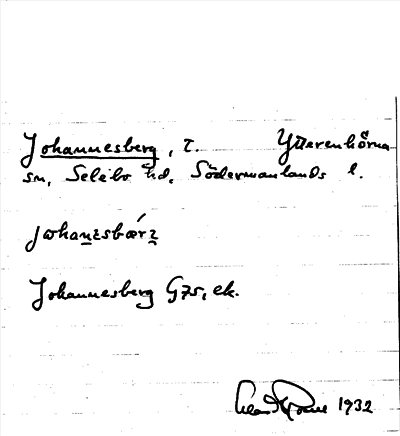 Johannesberg, t. Ytterenhörna
sn, Selebo hd, Södermanlands l.
johanesbærɛ
Johannesberg G7S, ek.
1932